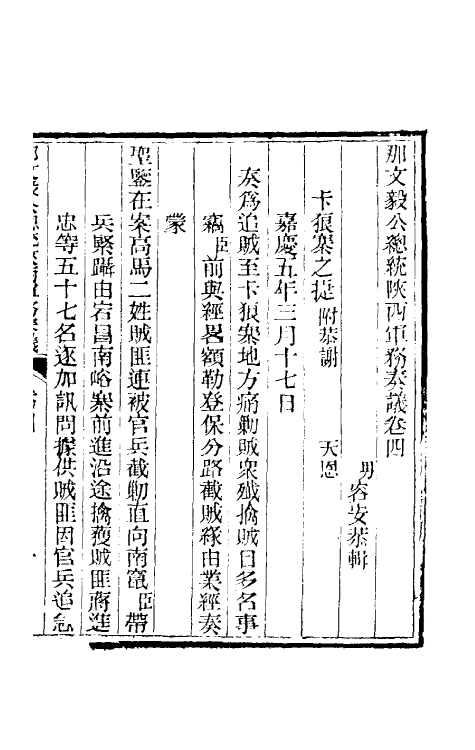 那文毅公總統陜西軍務奏議卷四
男容安恭輯
卡狼寨之捷附恭謝 天恩
嘉慶五年三月十七日
奏爲追賊至卡狼寨地方痛勦賊衆殲擒賊目多名事
竊臣前與經畧額勒登保分路截賊緣由業經奏
蒙
聖鑒在案高馬二姓賊匪連被官兵截勦直向南竄臣帶
兵緊躡由宕昌南峪寨前進沿途擒獲賊匪蔣進
忠等五十七名逐加訊問據供賊匪因官兵追急